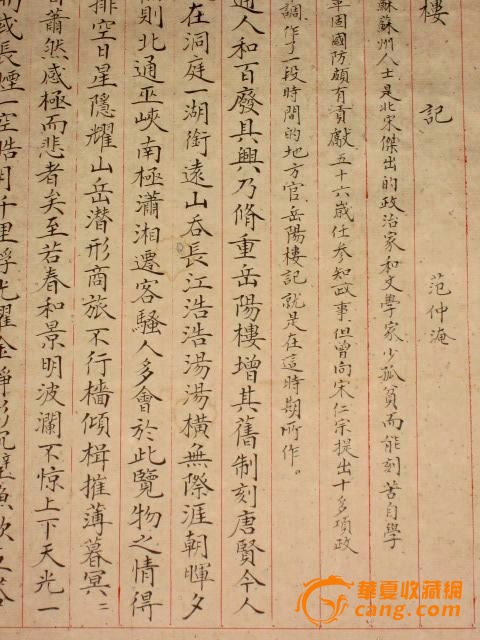 樓 記 范仲淹
蘇蘇州人士是北宋傑出的政治家和文學家少孤貧而能刻苦自學
鞏固國防頗有貢獻五十六歲任參知政事但曾向宋仁宗提出十多項政
調作了一段時間的地方官岳陽樓記就是在這時期所作。
通人和百廢具興乃脩重岳陽樓增其舊制刻唐賢今人
在洞庭一湖銜遠山吞長江浩浩湯湯橫無際涯朝暉夕
則北通巫峽南極瀟湘遷客騷人多會於此覽物之情得
排空日星隱耀山岳潛形商旅不行檣傾楫摧薄暮冥〻
蕭然感極而悲者矣至若春和景明波瀾不惊上下天光一
或長煙一空皓月千里浮光耀金靜影沉璧漁歌互答
華夏收藏網
cang.com